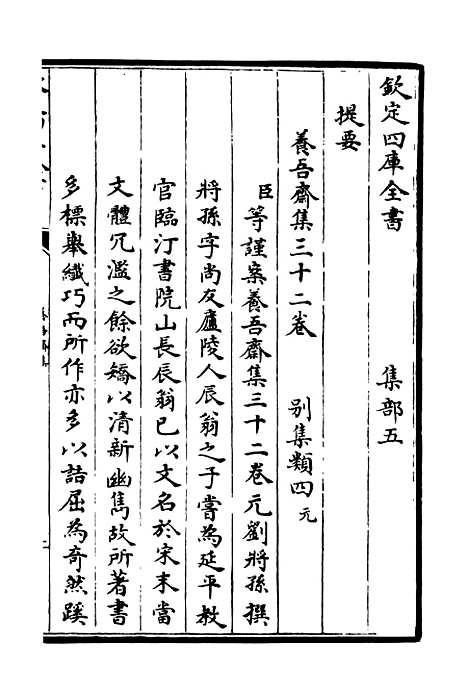 欽定四庫全書　集部五
提要
養吾齋集三十二卷　別集類四元
臣等謹案養吾齋集三十二卷元劉將孫撰
將孫字尚友廬陵人辰翁之子嘗為延平教
官臨汀書院山長辰翁已以文名於宋末當
文體冗濫之餘欲矯以清新幽雋故所著書
多標舉纖巧而所作亦多以詰屈為奇然蹊